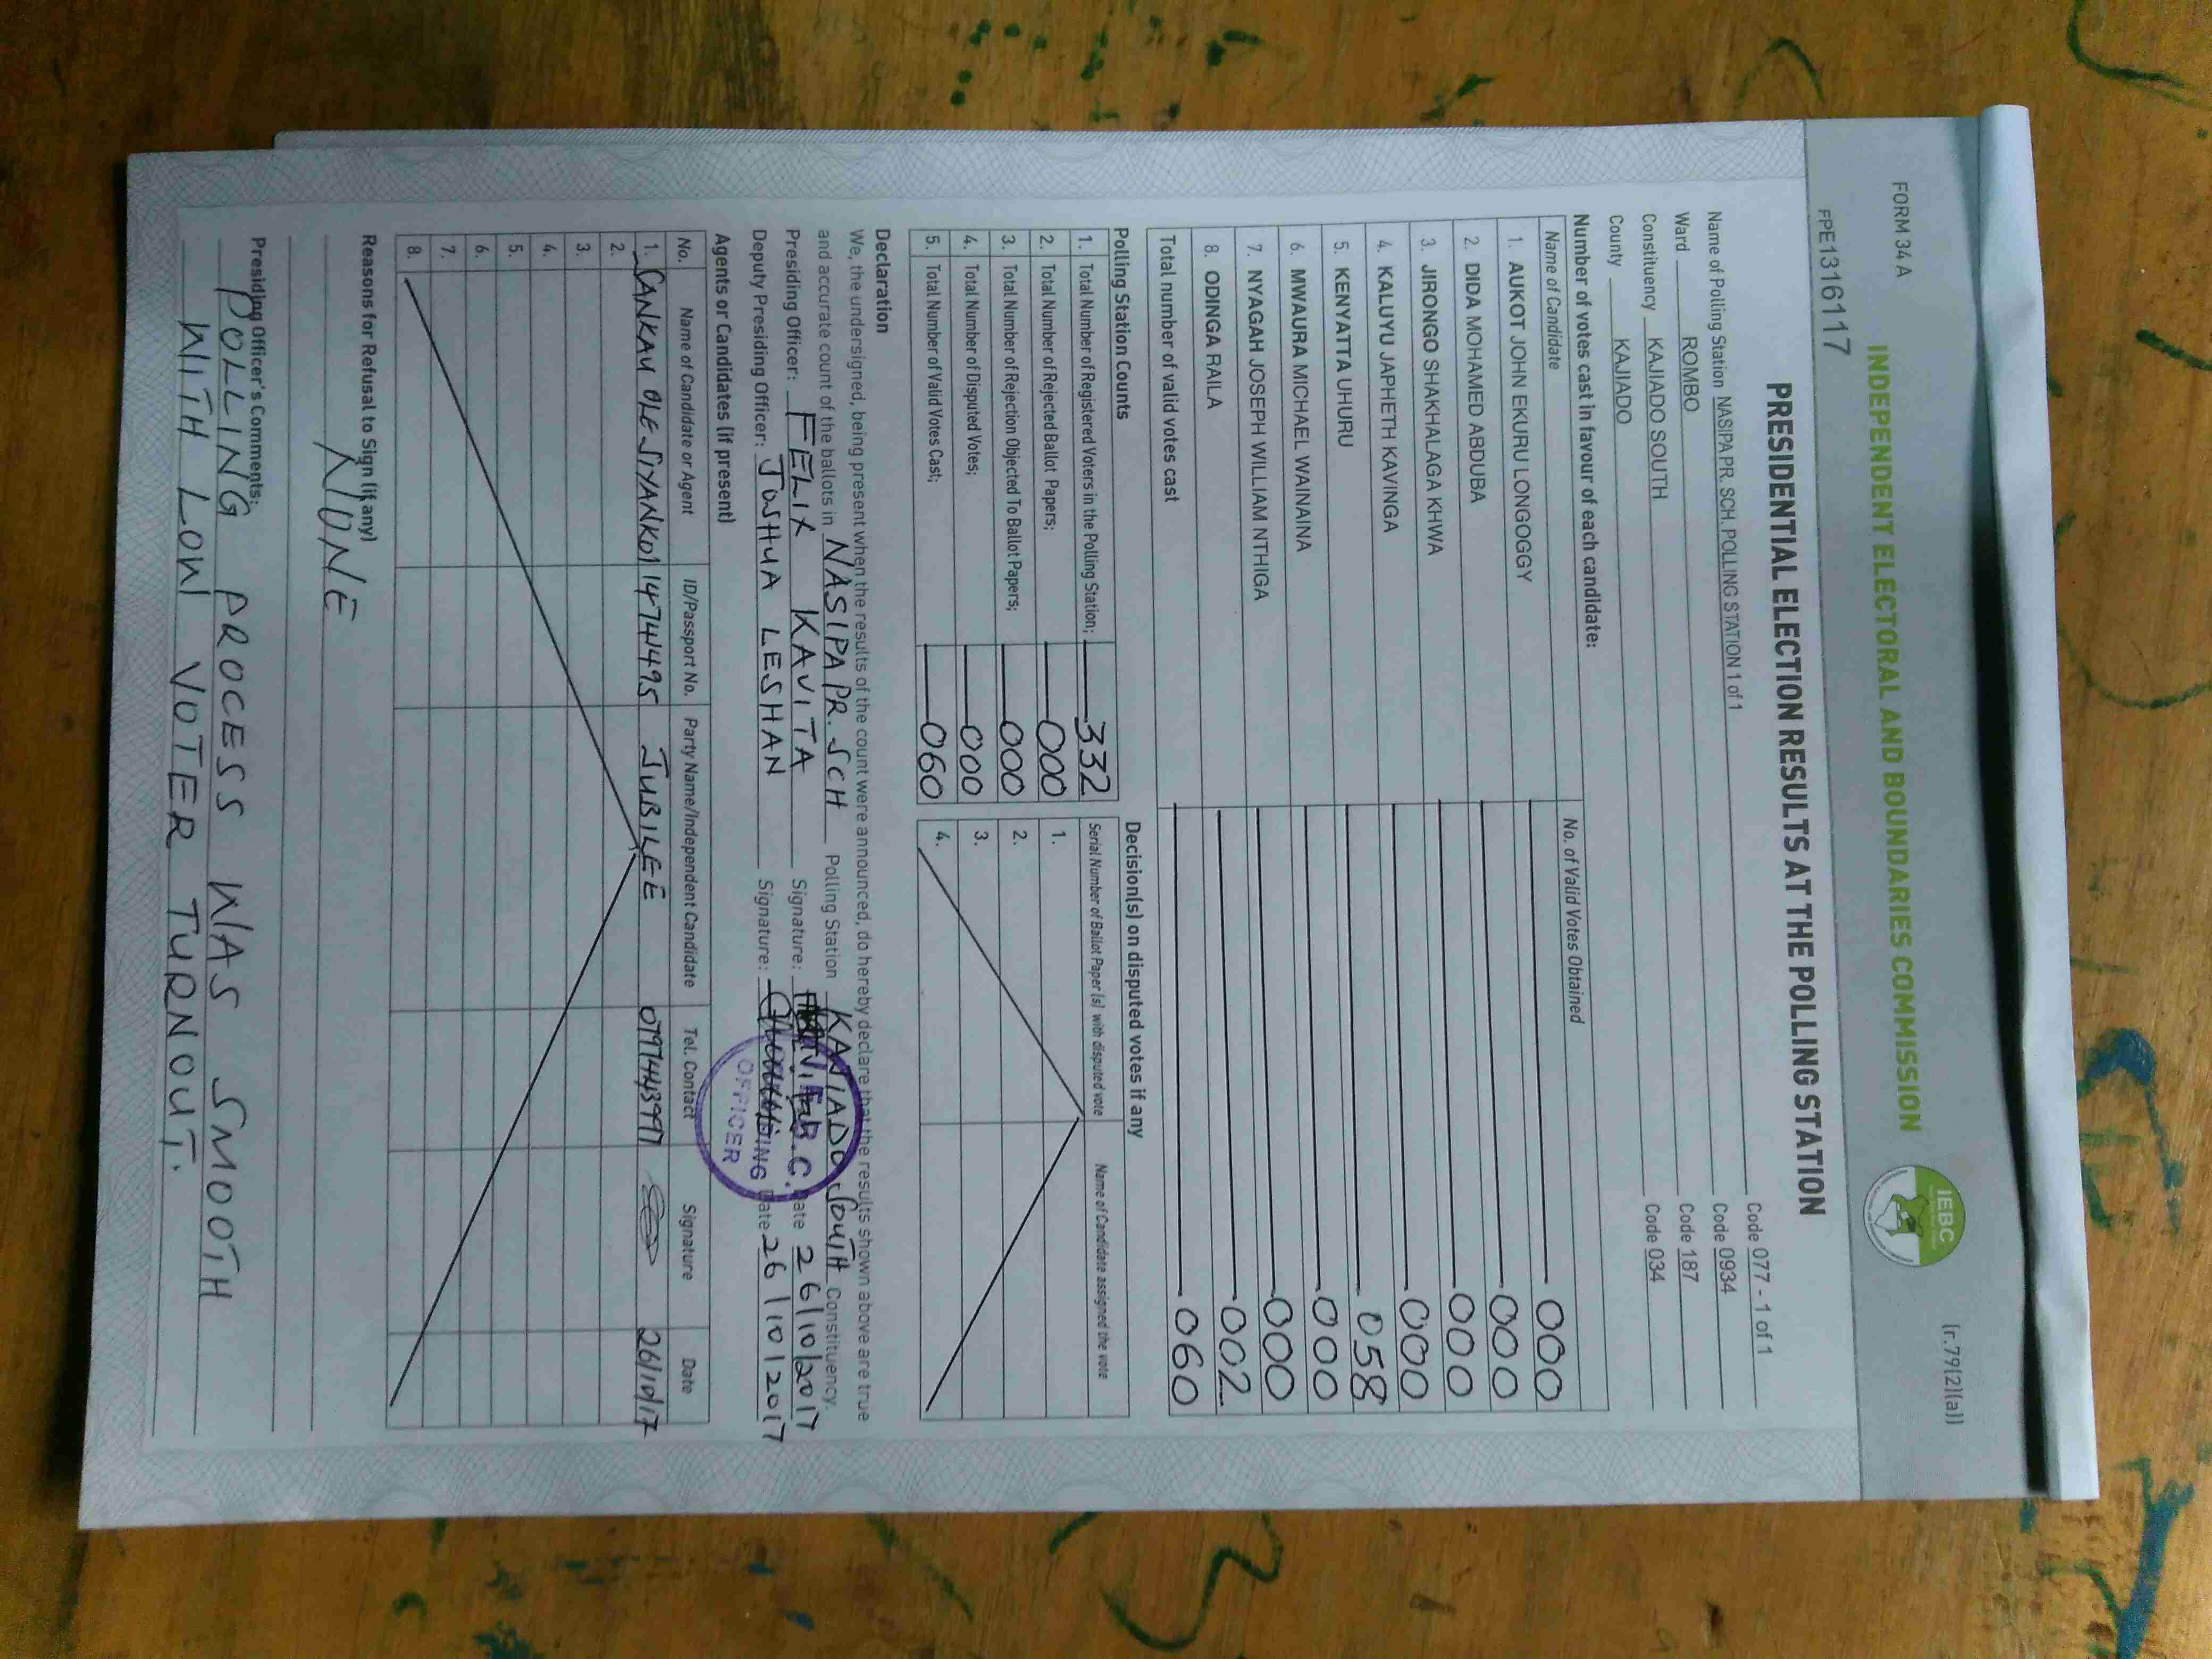 FORM 34 A
[r.79(2)(a)]
INDEPENDENT ELECTORAL AND BOUNDARIES COMMISSION
IEBC
FPE1316117
PRESIDENTIAL ELECTION RESULTS AT THE POLLING STATION
Name of Polling Station NASIPA PR. SCH. POLLING STATION 1 of 1 Code 077 - 1 of 1
Ward ROMBO Code 0934
Constituency KAJIADO SOUTH Code 187
County KAJIADO Code 034
Number of votes cast in favour of each candidate:
Name of Candidate No. of Valid Votes Obtained
1. AUKOT JOHN EKURU LONGOGGY 000
2. DIDA MOHAMED ABDUBA 000
3. JIRONGO SHAKHALAGA KHWA 000
4. KALUYU JAPHETH KAVINGA 000
5. KENYATTA UHURU 058
6. MWAURA MICHAEL WAINAINA 000
7. NYAGAH JOSEPH WILLIAM NTHIGA 000
8. ODINGA RAILA 002
Total number of valid votes cast 060
Polling Station Counts
1. Total Number of Registered Voters in the Polling Station; 332
2. Total Number of Rejected Ballot Papers; 000
3. Total Number of Rejection Objected To Ballot Papers; 000
4. Total Number of Disputed Votes; 000
5. Total Number of Valid Votes Cast; 060
Decision(s) on disputed votes if any
Serial Number of Ballot Paper (s) with disputed vote Name of Candidate assigned the vote
1.
2.
3.
4.
Declaration
We, the undersigned, being present when the results of the count were announced, do hereby declare that the results shown above are true
and accurate count of the ballots in NASIPA PR. SCH Polling Station KAJIADO SOUTH Constituency.
Presiding Officer: FELIX KAVITA Signature: Date 26/10/2017
Deputy Presiding Officer: JOSHUA LESHAN Signature: Date 26/10/2017
OFFICER
Agents or Candidates (if present)
No. Name of Candidate or Agent ID/Passport No. Party Name/Independent Candidate Tel. Contact Signature Date
1. SANKAU OLE SIYANKOI 14741495 JUBILEE 26/10/17
2.
3.
4.
5.
6.
7.
8.
Reasons for Refusal to Sign (if any)
NONE
Presiding Officer's Comments:
POLLING PROCESS WAS SMOOTH
WITH LOW VOTER TURNOUT.